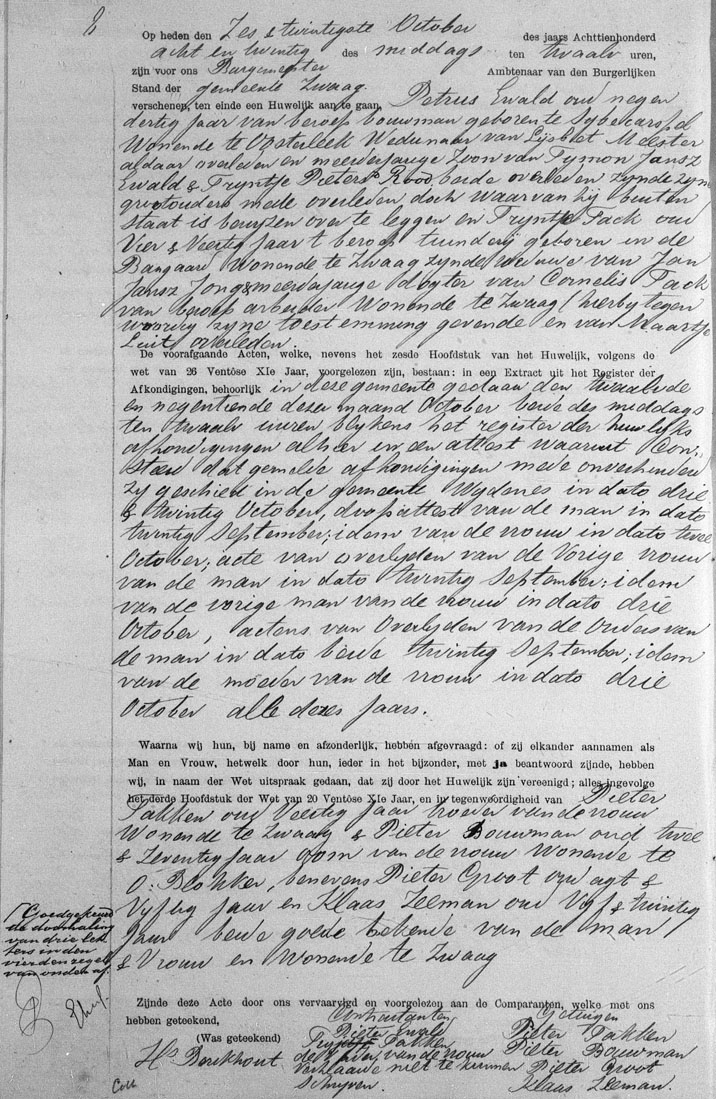 Op heden den Zes & twintigste October des jaars Achttienhonderd
acht en twintig des middags ten twaalv uren,
zijn voor ons Burgemeester Ambtenaar van den Burgerlijken
Stand der gemeente Zwaag.
verschenen, ten einde een Huwelijk aan te gaan, Petrus Ewald oud negen
dertig Jaar van beroep bouwman geboren te Sybecarspel
Wonende te Oosterleek Wedunaar van Lijsbet Meester
aldaar overleden en meerderjarige Zoon van Tymon Jansz
Ewald & Tryntje Pieters Rood, beide overleden zynde zyne
grootouders mede overleden doch waarvan hij buiten
staat is bewyzen over te leggen en Tryntje Pack oud
Vier & Veertig Jaar beroep tuinderij geboren in de
Bangaard Wonende te Zwaag zynde weduwe van Jan
Jansz Jong & meerderjarige dogter van Cornelis Pack
van beroep arbeider Wonende te Zwaag (hierby tegen
woordig zyne toestemming gevende en van Maartje
Luit overleden.
De voorafgaande Acten, welke, nevens het zesde Hoofdstuk van het Huwelijk, volgens de
wet van 26 Ventôse XIe Jaar, voorgelezen zijn, bestaan: in een Extract uit het Register der
Afkondigingen, behoorlijk in deze gemeente gedaan den twaalvde
en negentiende dezer maand October beide des middags
ten twaalv uuren blykens het register der huwlijks
afkondigingen alhier en een attest waaruit con-
steerd dat gemelde afkondigingen mede onverhinderd
zy geschied in de gemeente Wydenes in dato drie
& twintig October, doopattest van de man in dato
twintig September; idem van de vrouw in dato twee
October; acte van overlyden van de Vorige vrouw
van de man in dato twintig September; idem
van de vorige man van de vrouw in dato drie
October, actens van Overlyden van de Ouders van
de man in dato beide twintig September; idem
van de moeder van de vrouw in dato drie
October alle dezes Jaars.
Waarna wij hun, bij name en afzonderlijk, hebben afgevraagd: of zij elkander aannamen als
Man en Vrouw, hetwelk door hun, ieder in het bijzonder, met ja beantwoord zijnde, hebben
wij, in naam der Wet uitspraak gedaan, dat zij door het Huwelijk zijn vereenigd; alles ingevolge
het derde Hoofdstuk der Wet van 20 Ventôse XIe Jaar, en in tegenwoordigheid van Pieter
Pakken oud Veertig Jaar broeder van de vrouw
Wonende te Zwaag & Pieter Bouwman oud twee
& Zeventig Jaar oom van de vrouw Wonende te
O: Blokker, benevens Pieter Groot oud agt &
Vyftig Jaar en Klaas Zeeman oud Vyf & twintig
Jaar beide goede bekende van de man
& Vrouw en Wonende te Zwaag
Goedgekeurd
de doorhaling
van drie let
ters in den
vierden regel
van onder af.
Zijnde deze Acte door ons vervaardigd en voorgelezen aan de Comparanten, welke met ons
hebben geteekend,
Contractanten Getuigen
(Was geteekend) Pieter Ewald Pieter Pakken
Tryntje Pakken Pieter Bouwman
Hs Berkhout de Vader van de vrouw Pieter Groot
verklaarde niet te kunnen Klaas Zeeman.
Schryven.
Coll